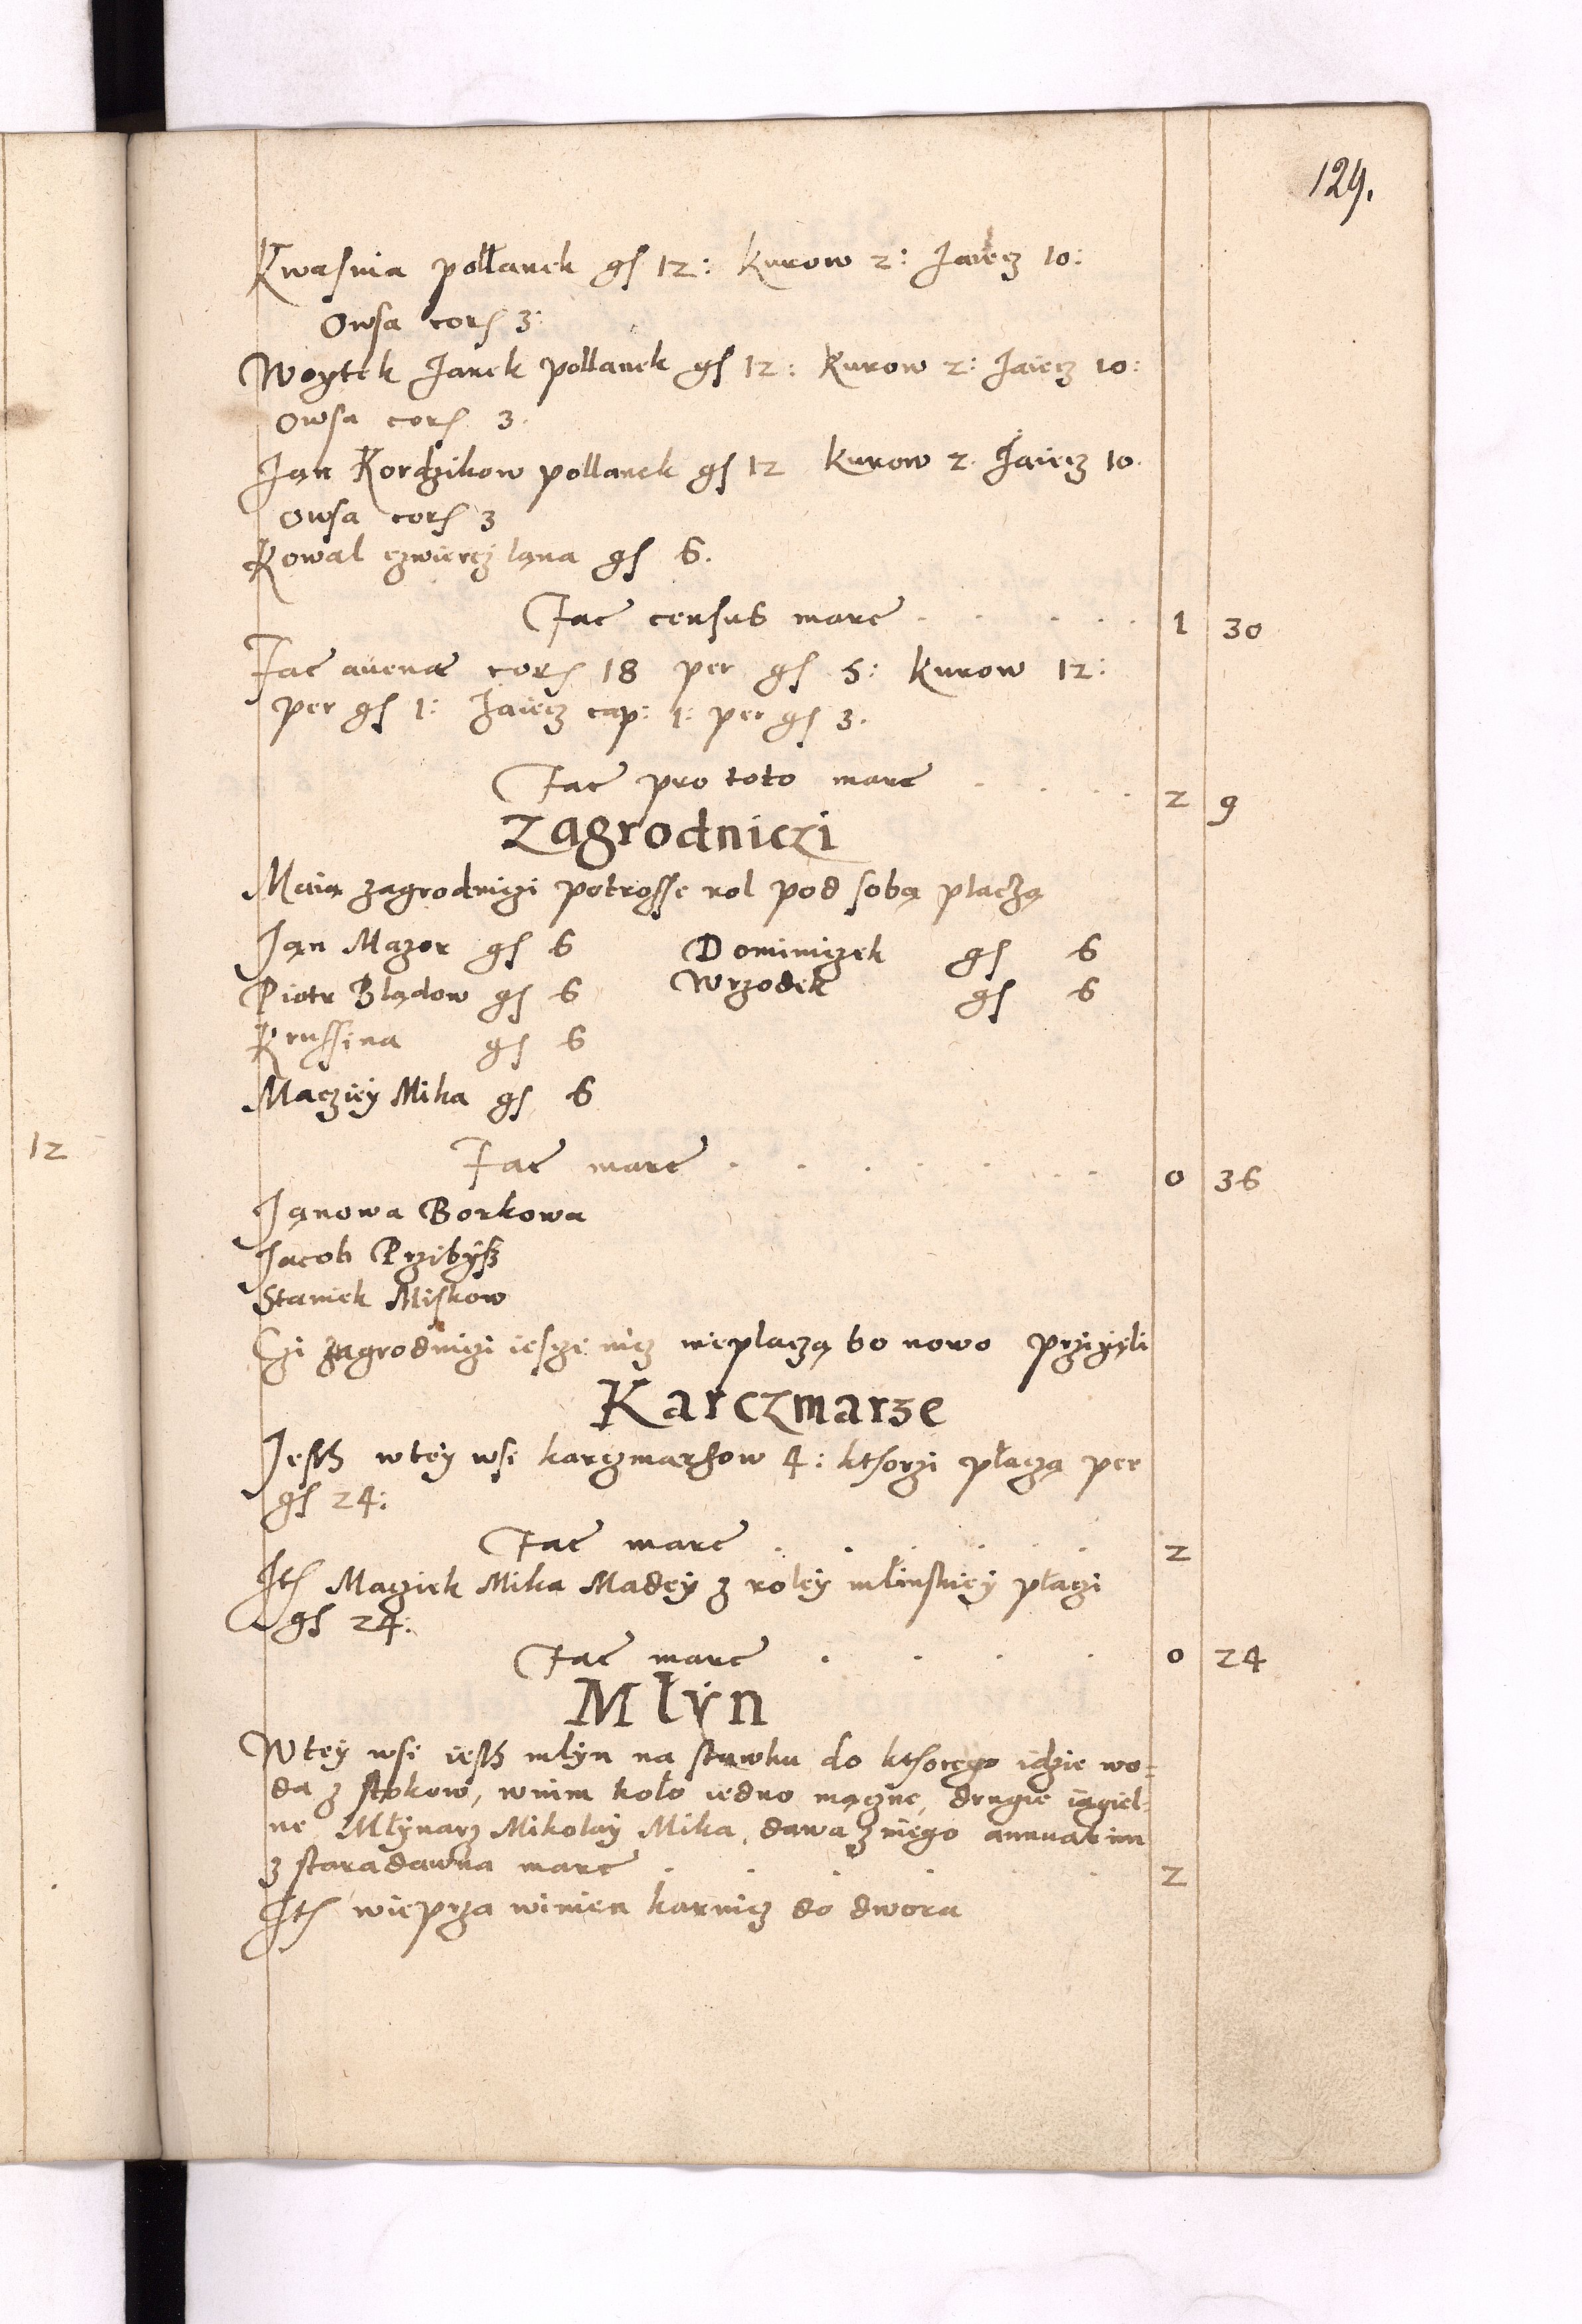 129.
Kwasnia połłanek gs 12: kurow 2: Jaiecz 10:
Owsa cors 3:
Woytek Janek pollanek gs 12: kurow 2: Jaiecz 10:
Owsa cors 3.
Jan Kordzikow pollanek gs 12 kurow 2. Jaiecz 10.
Owsa cors 3
Kowal czwiercz lana gs 6.
Fac census marc . . . . . 1 30
Fac auenæ cors 18 per gs 5: kurow 12:
per gs 1: Jaiecz cap: 1: per gs 3.
Fac pro toto marc . . . . 2 9
Zagrodniczi
Maią zagrodniczi potrosse rol pod sobą płaczą
Jan Mazor gs 6 Dominiczek gs 6
Piotr Blądow gs 6 Wrzodek gs 6
Krussina gs 6
Macziey Mika gs 6
12
Fac marc . . . . . . . 0 36
Janowa Borkowa
Jacob Przibysz
Staniek Miskow
Czi zagrodniczi iescze nicz nieplaczą bo nowo przisli
Karczmarze
Jesth wtey wsi karczmarzow 4: kthorzi płaczą per
gs 24:
Fac marc . . . . . 2
Its Macziek Mika Madey z roley młinskiey płaczi
gs 24:
Fac marc . . . . 0 24
Młyn
Wtey wsi iesth młyn na stawku do kthorego idzie wo=
da z stokow, wnim koło iedno mączne, drugie iagiel-
ne Młynarz Mikolay Mika, dawa z niego annuatim
z staradawna marc . . . . . . 2
Its wieprza winien karmicz do dwora